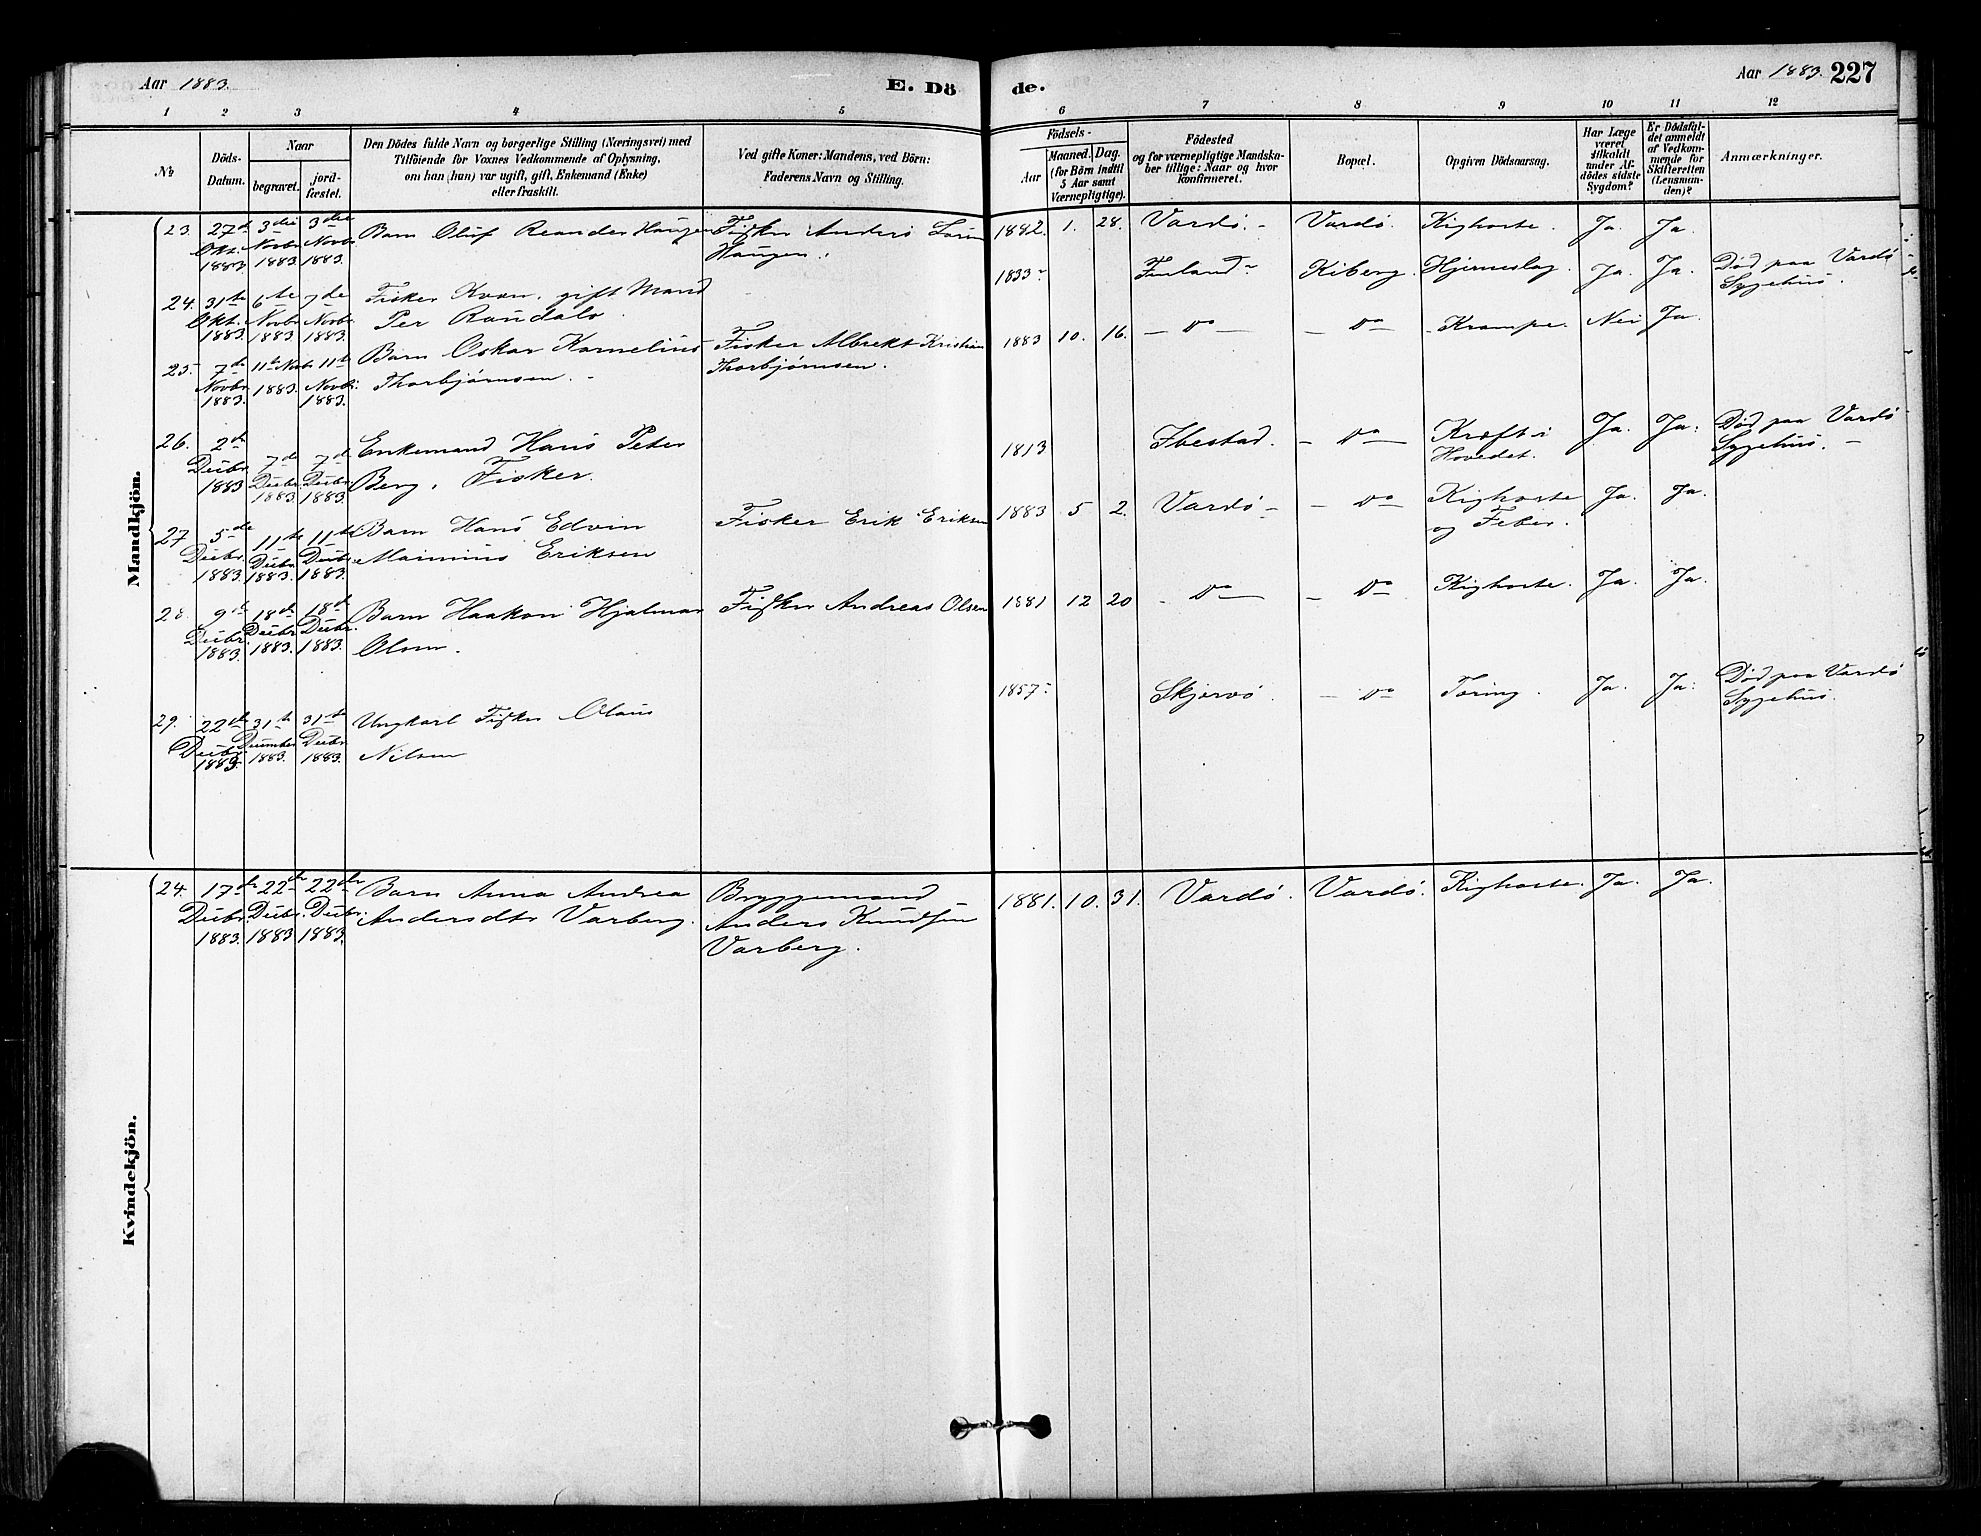 Aar 1883.
E. Dö
de.
Aar 1883. 227
1 2 3 4 5 6 7 8 9 10 11 12
№
Döds-
Datum.
Naar
begravet.
jord-
fæstet.
Den Dödes fulde Navn og borgerlige Stilling (Næringsvei) med
Tilföiende for Voxnes Vedkommende af Oplysning,
om han (hun) var ugift, gift, Enkemand (Enke)
eller fraskilt.
Ved gifte Koner: Mandens, ved Börn:
Faderens Navn og Stilling.
Födsels-
Aar
Maaned. Dag.
(for Börn indtil
5 Aar samt
Værnepligtige).
Födested
og for værnepligtige Mandska-
ber tillige: Naar og hvor
konfirmeret.
Bopæl.
Opgiven Dödsaarsag.
Har Læge
været
tilkaldt
under Af-
dödes sidste
Sygdom?
Er Dödsfal-
det anmeldt
af Vedkom-
mende for
Skifteretten
(Lensman-
den)?
Anmærkninger.
Mandkjön.
23. 27d 3die 3die Barn Oluf Reander Haugen Fisker Anders 1882. 1. 28. Vardö. - Vardö. Kighoste. Ja. Ja.
Okt. Novbr Novbr Haugen.
1883 1883 1883.
24. 31te 6te 7de Fisker Kvæn, gift Mand 1833 - Finland - Kiberg. Hjerneslag. Ja. Ja. Död paa Vardö
Okt. Novbr Novbr. Per Sygehus.
1883 1883 1883.
25. 7de 11te Novbr 11te Barn Oskar Kornelius Fisker Albrekt Kristian 1883 10. 16. - Do - - Do - Krampe. Nei Ja.
Novbr. 1883. Novbr. Thorbjørnsen. - Thorbjørnsen.
1883. 1883.
26. 2de 7de 7de Enkemand Hans Peter 1813 Ibestad. - Do - Kræft i Ja. Ja. Död paa Vardö
Decbr. Decbr Decbr Berg, Fisker. Hovedet. Sygehus. -
1883 1883 1883
27 5de 11te 11te Barn Hans Edvin Fisker Erik Eriksen 1883 5 2. Vardö - - Do - Kighoste Ja. Ja.
Decbr. Decbr. Decbr. Eriksen og Feber.
1883. 1883. 1883.
28. 9de 18de 18de Barn Haakon Hjalmar Fisker Andreas Olsen 1881 12 20 - Do - - Do - Kighoste. Ja. Ja.
Decbr. Decbr. Decbr. Olsen.
1883. 1883. 1883.
29. 22de 31te 31te Ungkarl Fisker Olaus 1857 - Skjervö. - Do Tæring. Ja. Ja. Död paa Vardö
Decbr. December Decbr. Nilsen Sygehus.
1883. 1883. 1883.
Kvindekjön.
24. 17de 22de 22de Barn Anna Andrea Bryggemand 1881. 10. 31. Vardö. Vardö. Kighoste. Ja. Ja.
Decbr. Decbr. Decbr. Andersdtr Varberg. Anders Knudsen
1883. 1883 1883. Varberg.